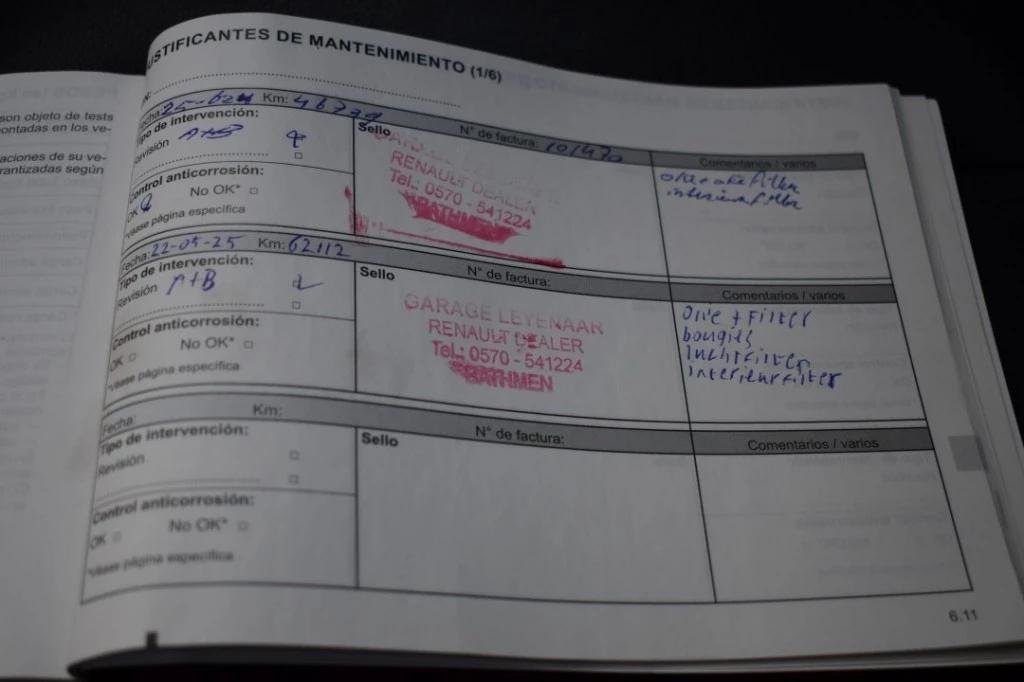 USTIFICANTES DE MANTENIMIENTO (1/6)
son objeto de tests
ontadas en los ve-
aciones de su ve-
rantizadas según
Fecha: Km: 46779
Tipo de intervención:
Revisión A+B
Control anticorrosión:
OK No OK*
*Véase página específica
Sello N° de factura: 101470
RENAULT DEALER
Tel.: 0570 - 541224
BATHMEN
Comentarios / varios
interieurfilter
Fecha: 22-05-25 Km: 62112
Tipo de intervención:
Revisión A+B
Control anticorrosión:
OK No OK*
*Véase página específica
Sello N° de factura:
GARAGE LEYENAAR
RENAULT DEALER
Tel.: 0570 - 541224
BATHMEN
Comentarios / varios
Olie + Filter
bougies
luchtfilter
interieurfilter
Fecha: Km:
Tipo de intervención:
Revisión
Control anticorrosión:
OK No OK*
*Véase página específica
Sello N° de factura:
Comentarios / varios
6.11